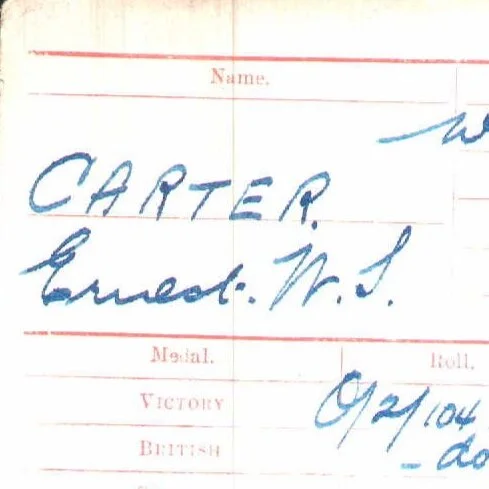 Name.
CARTER.
Ernest. W. S.
Medal. Roll.
VICTORY O/2/104
BRITISH - do